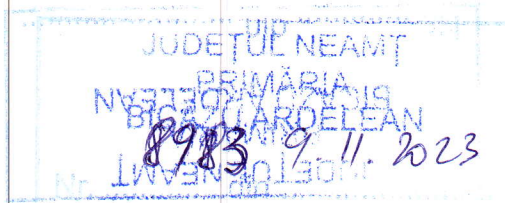 JUDEȚUL NEAMȚ
PRIMĂRIA
BICAZU ARDELEAN
8983 9.11.2023